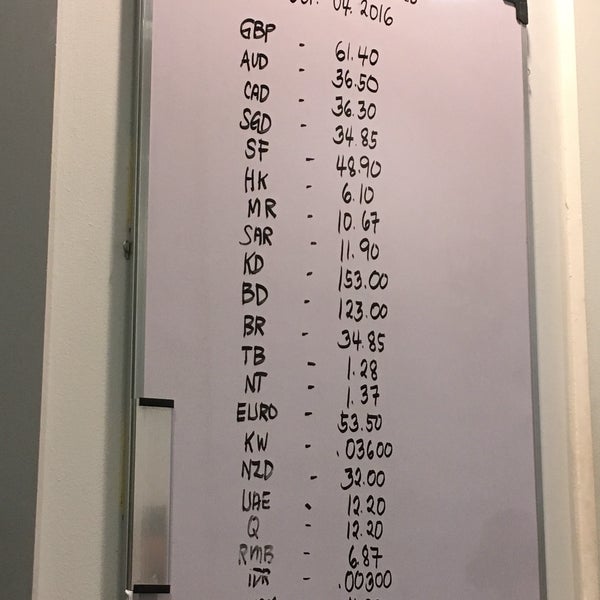 04. 2016
GBP - 61.40
AUD - 36.50
CAD - 36.30
SGD - 34.85
SF - 48.90
HK - 6.10
MR - 10.67
SAR - 11.90
KD - 153.00
BD - 123.00
BR - 34.85
TB - 1.28
NT - 1.37
EURO - 53.50
KW - .03600
NZD - 32.00
UAE - 12.20
Q - 12.20
RMB - 6.87
IDR - .00300